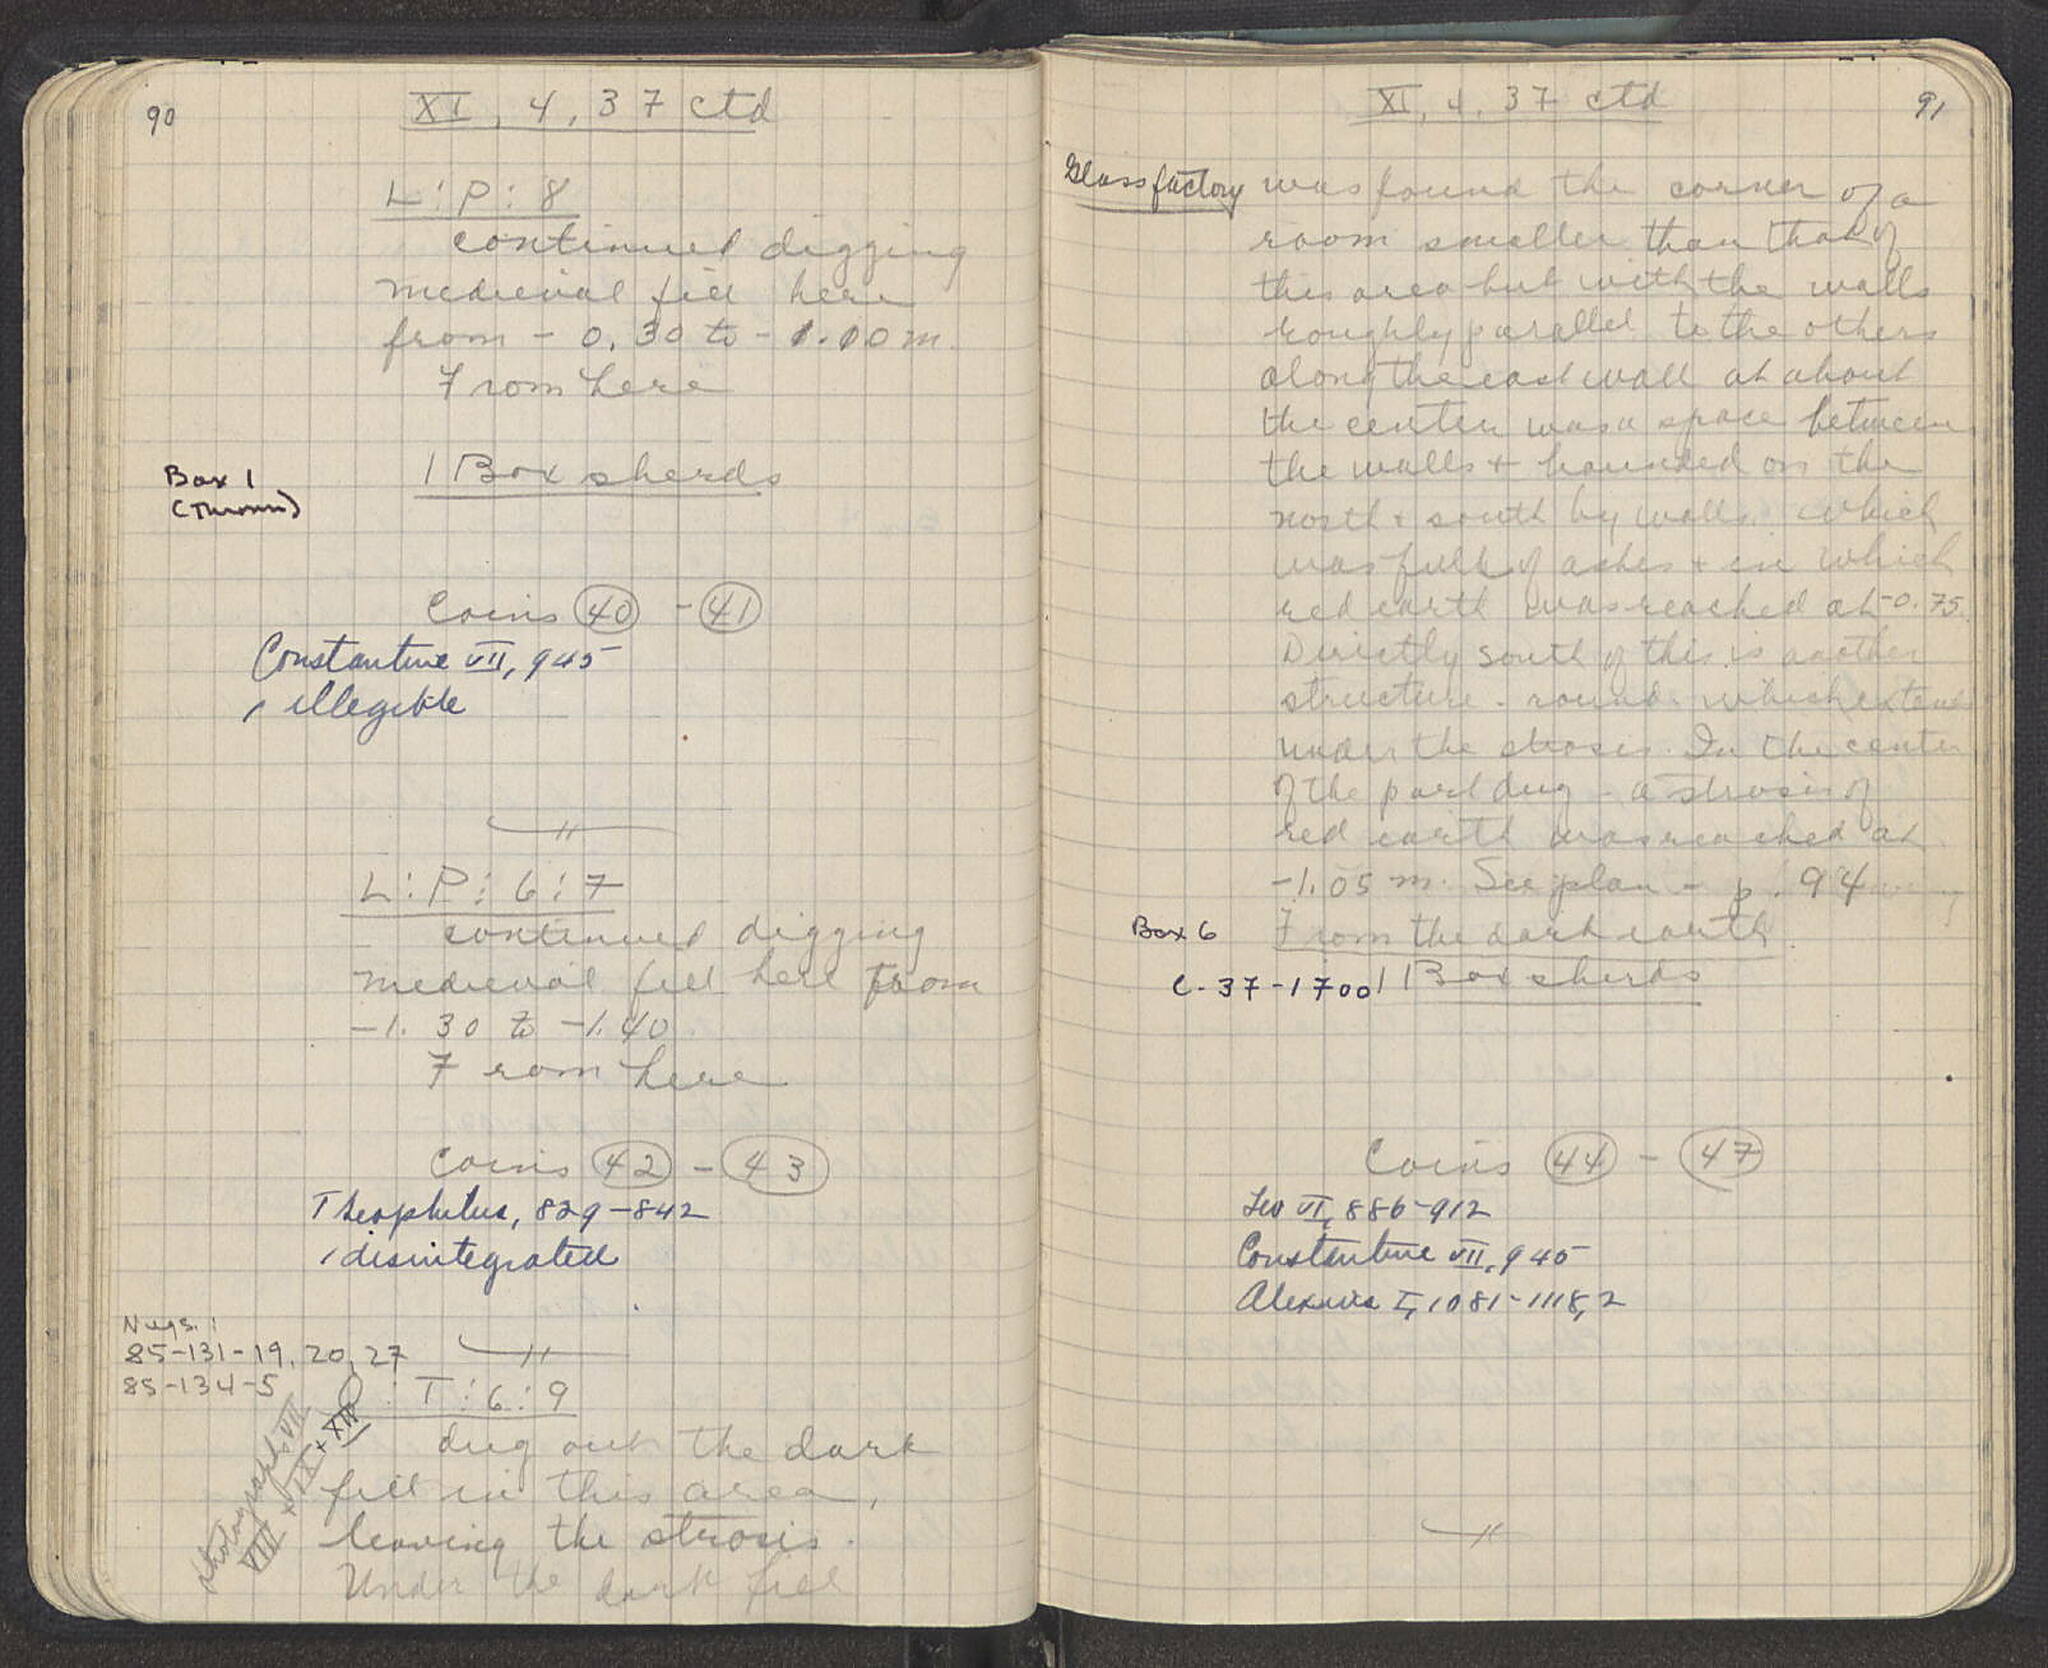 90
XI, 4, 37 ctd
L:P:8
continued digging
medieval fill here
from - 0.30 to - 1.10 m.
From here
Box 1
(Thrown)
1 Box sherds
Coins 40 - 41
Constantine VII, 945
1 illegible
L:P:6:7
continued digging
medieval fill here from
-1.30 to -1.40.
From here
Coins 42 - 43
Theophilus, 829-842
1 disintegrated
Negs.:
85-131-19, 20, 27
85-134-5
photographs VII
VIII + IX + XII
P:T:6:9
dug out the dark
fill in this area,
leaving the strosis.
Under the dark fill
XI, 4, 37 ctd
91
Glass factory
was found the corner of a
room smaller than that of
this area but with the walls
roughly parallel to the others
along the east wall at about
the center was a space between
the walls + bounded on the
north + south by walls which
was full of ashes + in which
red earth was reached at -0.75.
Directly south of this is another
structure - round - which extends
under the strosis. In the center
of the part dug - a strosis of
red earth was reached at
-1.05 m. See plan - p. 94
Box 6
From the dark earth
C-37-1700
1 Box sherds
Coins 44 - 47
Leo VI, 886-912
Constantine VII, 945
Alexius I, 1081-1118, 2